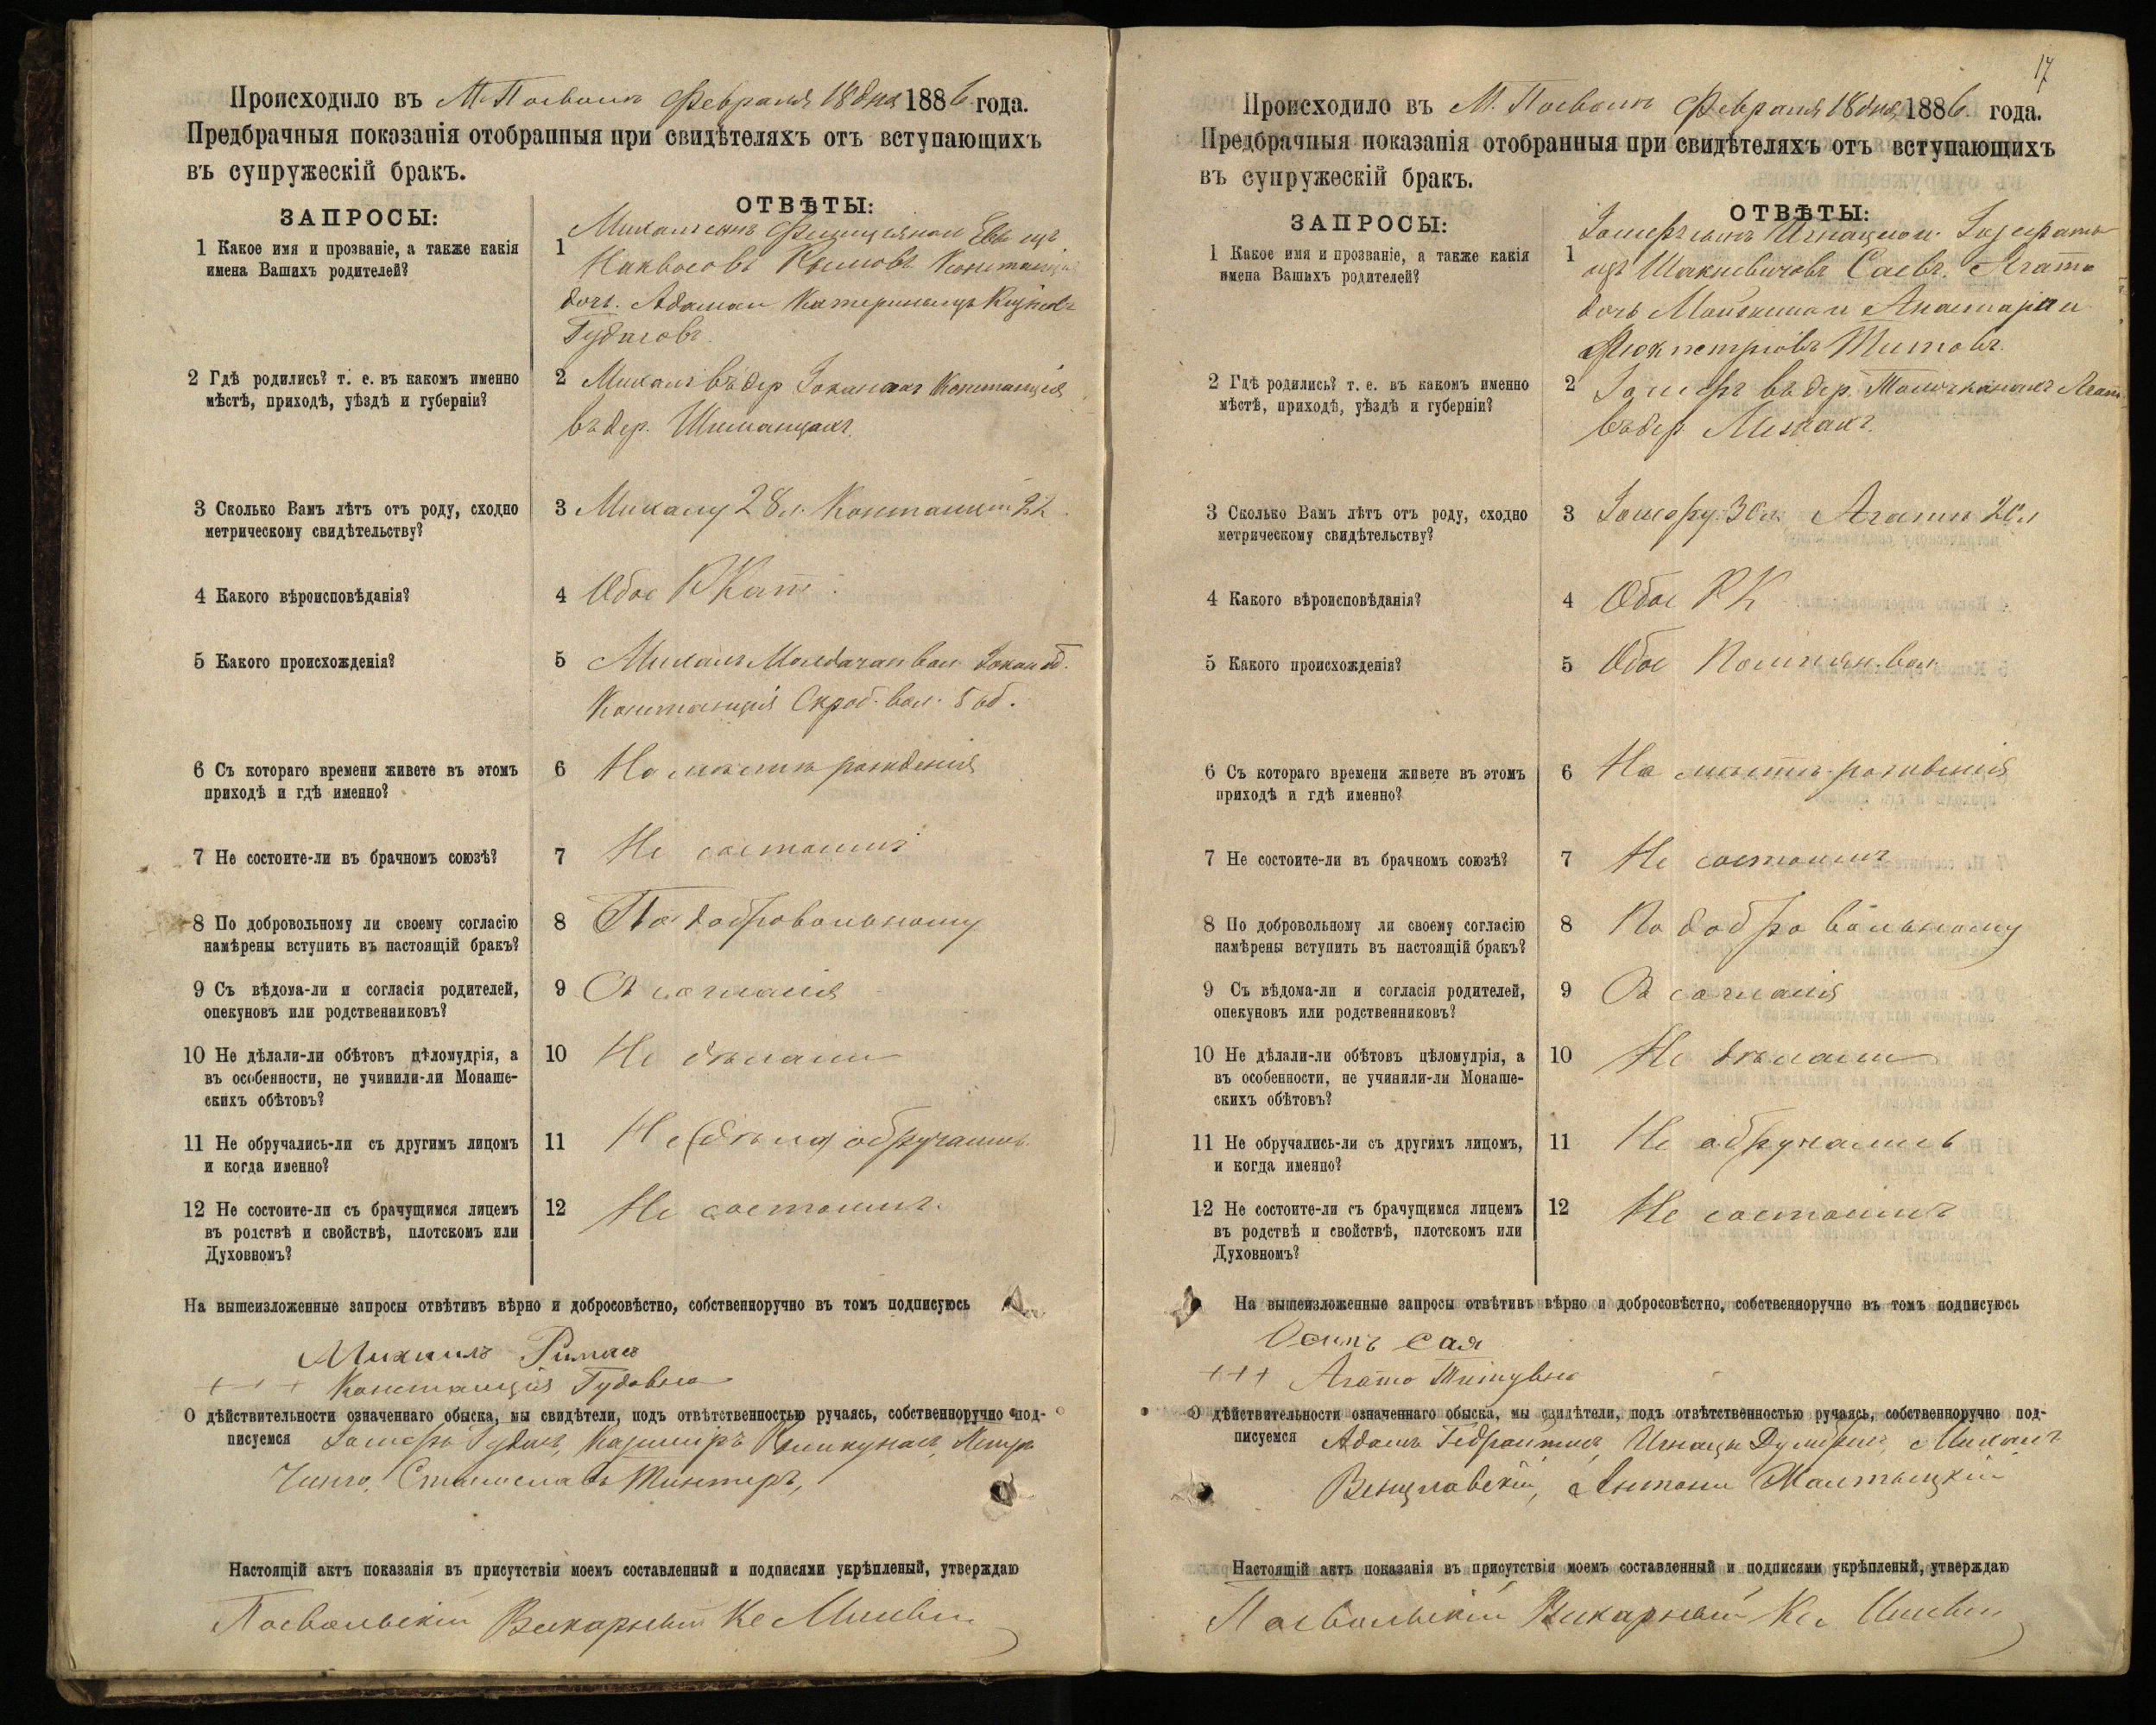 Происходило въ М. Посволѣ Февраля 18 дня 1886 года.
Предбрачныя показанія отобранныя при свидѣтеляхъ отъ вступающихъ
въ супружескій бракъ.
ЗАПРОСЫ:
ОТВѢТЫ:
1 Какое имя и прозваніе, а также какія
имена Вашихъ родителей?
1 Михалъ сынъ Евы изъ
Константція
дочь Адама и Катерины изъ
2 Гдѣ родились? т. е. въ какомъ именно
мѣстѣ, приходѣ, уѣздѣ и губерніи?
2 Михалъ въ дер Константція
въ дер.
3 Сколько Вамъ лѣтъ отъ роду, сходно
метрическому свидѣтельству?
3 Михалу 28 л. Константціи 22
4 Какого вѣроисповѣданія?
4 Обое Р Кат.
5 Какого происхожденія?
5 Михалъ вол. об.
Константція Скроб. вол. 5 об.
6 Съ котораго времени живете въ этомъ
приходѣ и гдѣ именно?
6 На мѣстѣ рожденія
7 Не состоите-ли въ брачномъ союзѣ?
7 Не состоимъ
8 По добровольному ли своему согласію
намѣрены вступить въ настоящій бракъ?
8 По добровольному
9 Съ вѣдома-ли и согласія родителей,
опекуновъ или родственниковъ?
9 Съ согласія
10 Не дѣлали-ли обѣтовъ цѣломудрія, а
въ особенности, не учинили-ли Монаше-
скихъ обѣтовъ?
10 Не дѣлали
11 Не обручались-ли съ другимъ лицомъ
и когда именно?
11 Не (дѣла) обручались
12 Не состоите-ли съ брачущимся лицемъ
въ родствѣ и свойствѣ, плотскомъ или
Духовномъ?
12 Не состоимъ.
На вышеизложенные запросы отвѣтивъ вѣрно и добросовѣстно, собственноручно въ томъ подписуюсь
Михаилъ Римас
+ + + Константція Гудовна
О дѣйствительности означеннаго обыска, мы свидѣтели, подъ отвѣтственностью ручаясь, собственноручно под-
писуемся Гудасъ, Казимиръ Петръ
Станиславъ
Настоящій актъ показанія въ присутствіи моемъ составленный и подписями укрѣпленый, утверждаю
Посвольскій Викарный Кс
17
Происходило въ М. Посволѣ Февраля 18 дня 1886 года.
Предбрачныя показанія отобранныя при свидѣтеляхъ отъ вступающихъ
въ супружескій бракъ.
ЗАПРОСЫ:
ОТВѢТЫ:
1 Какое имя и прозваніе, а также какія
имена Вашихъ родителей?
1 сынъ
изъ Саевъ. Агата
дочь и
Титовъ.
2 Гдѣ родились? т. е. въ какомъ именно
мѣстѣ, приходѣ, уѣздѣ и губерніи?
2 въ дер. Агата
въ дер
3 Сколько Вамъ лѣтъ отъ роду, сходно
метрическому свидѣтельству?
3 30 л. Агати л
4 Какого вѣроисповѣданія?
4 Обое Р К
5 Какого происхожденія?
5 Обое вол.
6 Съ котораго времени живете въ этомъ
приходѣ и гдѣ именно?
6 На мѣстѣ рожденія
7 Не состоите-ли въ брачномъ союзѣ?
7 Не состоимъ
8 По добровольному ли своему согласію
намѣрены вступить въ настоящій бракъ?
8 По добровольному
9 Съ вѣдома-ли и согласія родителей,
опекуновъ или родственниковъ?
9 Съ согласія
10 Не дѣлали-ли обѣтовъ цѣломудрія, а
въ особенности, не учинили-ли Монаше-
скихъ обѣтовъ?
10 Не дѣлали
11 Не обручались-ли съ другимъ лицомъ,
и когда именно?
11 Не обручались
12 Не состоите-ли съ брачущимся лицемъ
въ родствѣ и свойствѣ, плотскомъ или
Духовномъ?
12 Не состоимъ
На вышеизложенные запросы отвѣтивъ вѣрно и добросовѣстно, собственноручно въ томъ подписуюсь
Осипъ Сая
+++ Агата Титувна
О дѣйствительности означеннаго обыска, мы свидѣтели, подъ отвѣтственностью ручаясь, собственноручно под-
писуемся Адамъ Игнацы Михалъ
Венцлавскій, Антони
Настоящій актъ показанія въ присутствіи моемъ составленный и подписями укрѣпленый, утверждаю
Посвольскій Викарный Кс